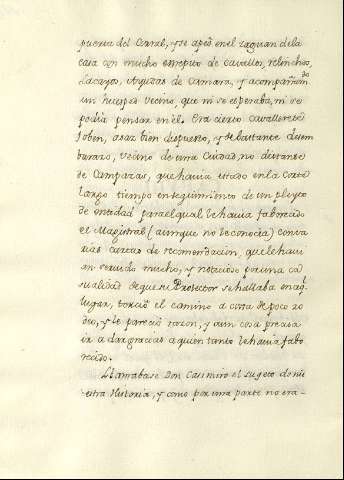 puerta del Corral, y se apeó en el zaguan de la
casa con mucho estrepito de cavallos, relinchos,
Lacayos, Ayudas de Camara, y acompañam.do
un huesped vecino, que ni se esperaba, ni se
podia pensar en él. Era cierto cavallerete
Joben, asaz bien dispuesto, y de bastante desem
barazo, vecino de una Ciudad, no distante
de Campazas, que havia estado en la Corte
largo tiempo en seguimiento de un pleyto
de entidad para el qual le havia faborecido
el Magistral (aunque no le conocia) con va
rias cartas de recomendacion, que le havi
an servido mucho, y noticioso por una ca
sualidad de que su Protector se hallaba en aq.l
lugar, torció el camino a costa de poco ro
deo, y le pareció razon, y aun cosa precisa
ir a dar gracias a quien tanto le havia fabo
recido.
Llamabase Don Casimiro el sugeto de nu
estra Historia, y como por una parte no era-